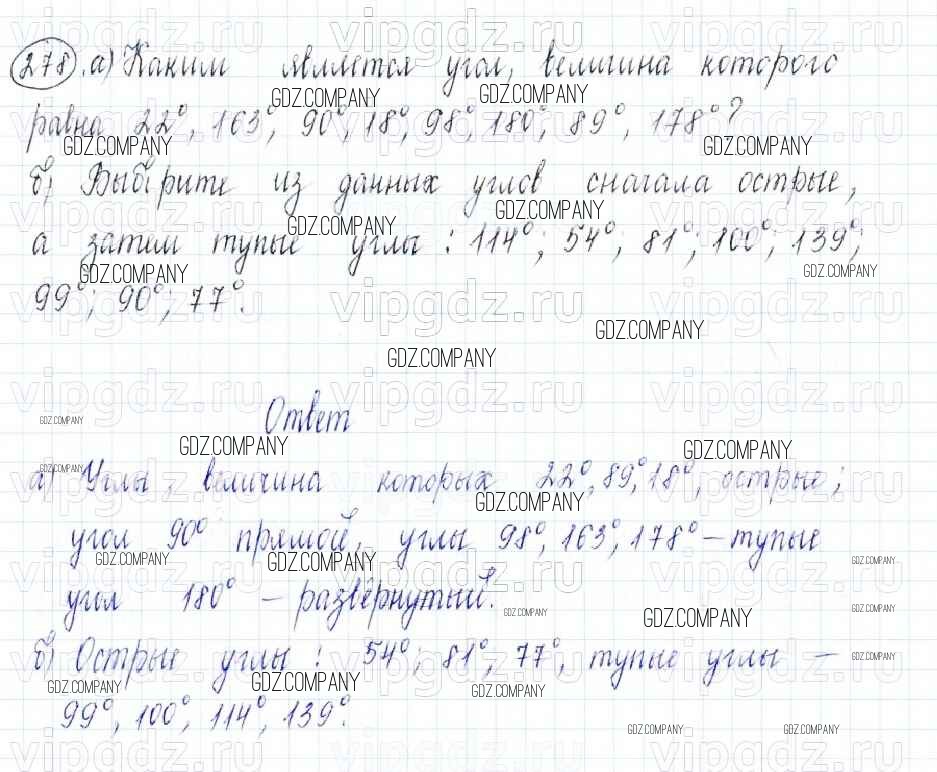 278. а) Каким является угол, величина которого
равна 22°, 163°, 90°, 18°, 98°, 180°, 89°, 178°?
б) Выбирите из данных углов сначала острые,
а затем тупые углы: 114°; 54°; 81°; 100°; 139°;
99°; 90°; 77°.
Ответ
а) Углы, величина которых 22°, 89°, 18°, острые;
угол 90° прямой, углы 98°, 163°, 178° – тупые
угол 180° – развёрнутый.
б) Острые углы: 54°; 81°, 77°, тупые углы –
99°, 100°, 114°, 139°.
vipgdz.ru
GDZ.COMPANY